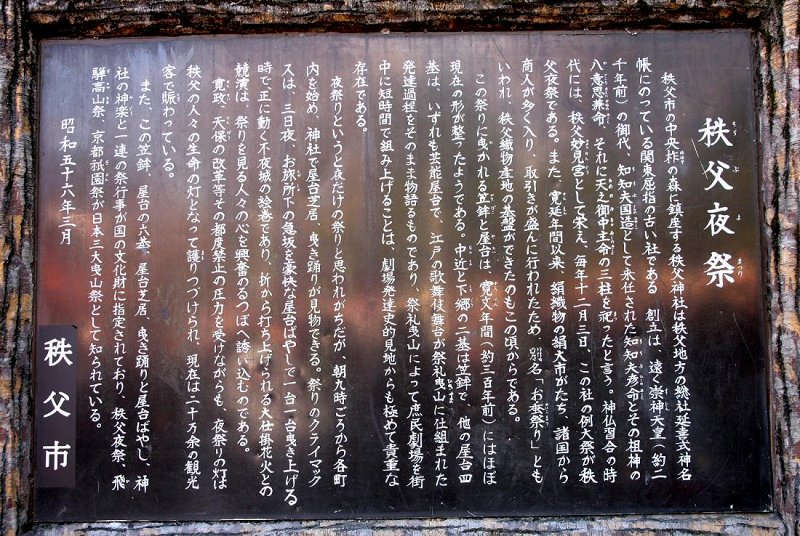 秩父夜祭
秩父市の中央柞の森に鎮座する秩父神社は秩父地方の總社延喜式神名
帳にのっている関東屈指の古い社である 創立は、遠く崇神天皇(約二
千年前)の御代、知知夫国造として永任された知知夫彦命とその祖神の
八意思兼命、それに天之御中主命の三柱を祀ったと言う。神仏習合の時
代には、秩父妙見宮として栄え、毎年十二月三日、この社の例大祭が秩
父夜祭である。また、寛延年間以来、絹織物の絹大市がたち、諸国から
商人が多く入り、取引が盛んに行われたため 別名「お蚕祭り」とも
いわれ、秩父織物産地の基盤ができたのもこの頃からである。
この祭りに曳かれる笠鉾と屋台は、寛文年間(約三百年前)にはほぼ
現在の形が整ったようである。中近と下郷の二基は笠鉾で、他の屋台四
基は、いずれも芸能屋台で、江戸の歌舞伎舞台が祭礼曳山に仕組まれた
発達過程をそのまま物語るものであり、祭礼曳山によって庶民劇場を街
中に短時間で組み上げることは、劇場発達史的見地からも極めて貴重な
存在である。
夜祭りというと夜だけの祭りと思われがちだが、朝九時ごろから各町
内を始め、神社で屋台芝居、曳き踊りが見物できる。祭りのクライマック
スは、三日夜、お旅所下の急坂を豪快な屋台ばやしで一台一台曳き上げる
時で、正に動く不夜城の絵巻であり、折から打ち上げられる大仕掛花火との
競演は、祭りを見る人々の心を興奮のるつぼへ誘い込むのである。
寛政、天保の改革等その都度禁止の圧力を受けながらも、夜祭りの灯は
秩父の人々の生命の灯となって護りつづけられ、現在は二十万余の観光
客で賑わっている。
また、この笠鉾、屋台の六基、屋台芝居、曳き踊りと屋台ばやし、神
社の神楽と一連の祭行事が国の文化財に指定されており、秩父夜祭、飛
騨高山祭、京都祇園祭が日本三大曳山祭として知られている。
昭和五十六年三月
秩父市